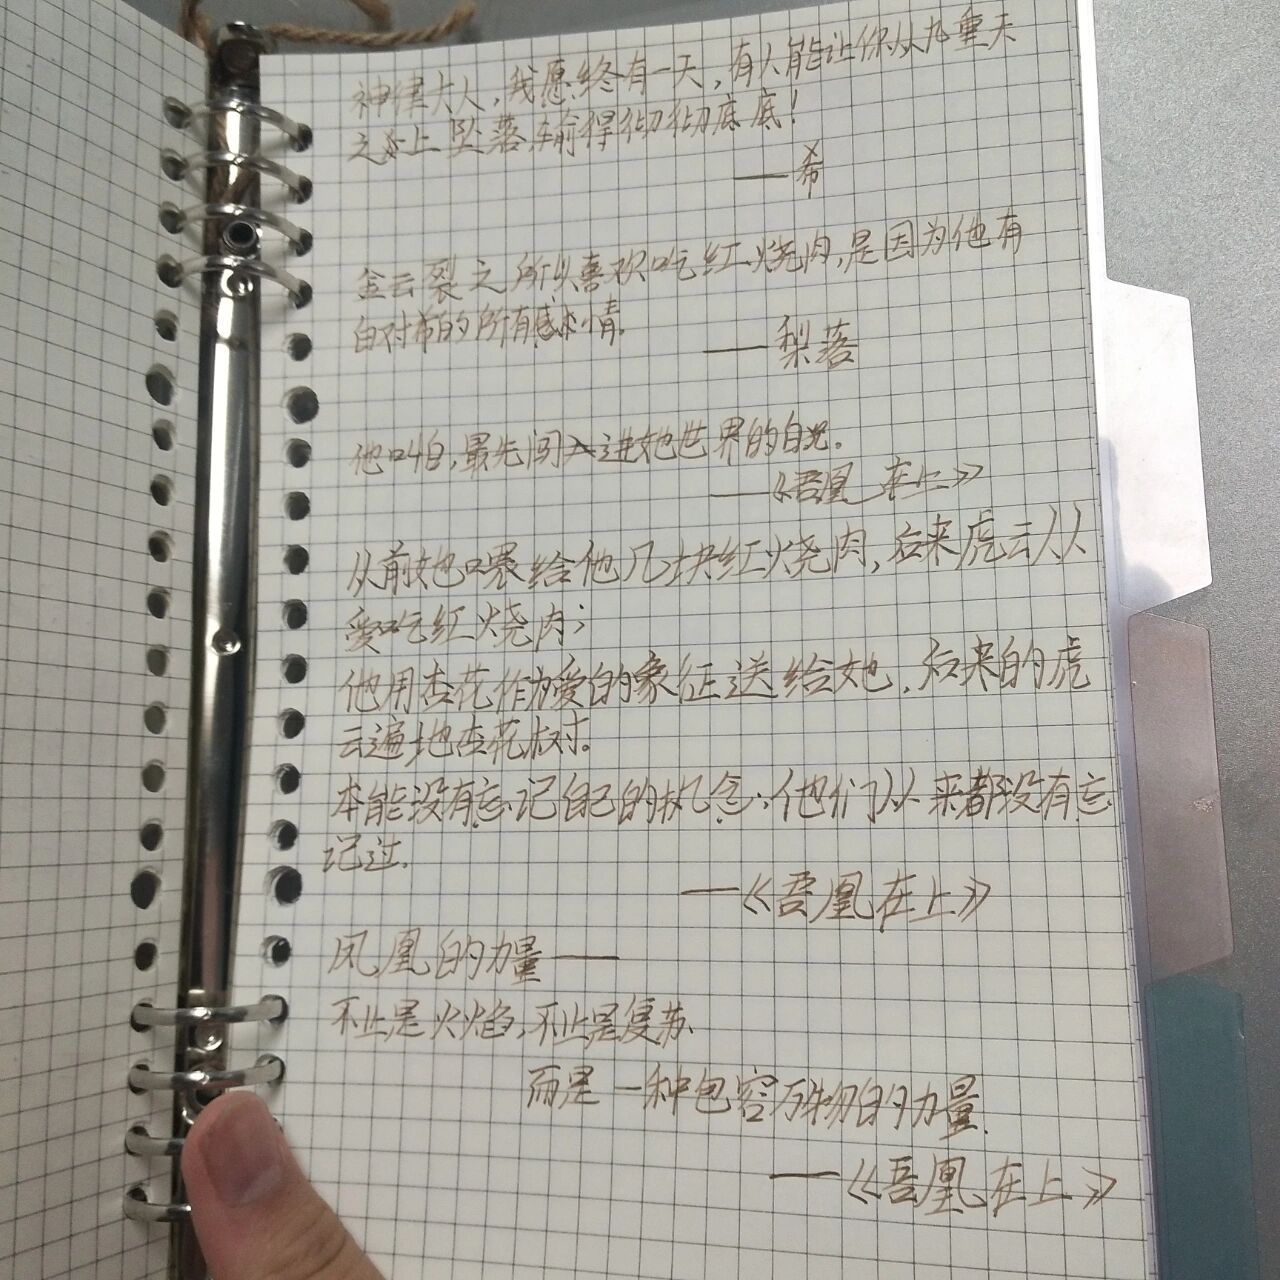 神律大人，我愿终有一天，有人能让你从九重天
之上坠落，输得彻彻底底！
——希
金云裂之所以喜欢吃红烧肉，是因为他有
白对希的所有感情。
——梨落
他叫白，最先闯进她世界的白。
——《吾凰在上》
从前她喂给他几块红烧肉，后来虎云人人
爱吃红烧肉；
他用杏花作为爱的象征送给她，后来的虎
云遍地杏花树。
本能没有忘记自己的执念，他们从来都没有忘
记过。
——《吾凰在上》
凤凰的力量——
不止是火焰，不止是复苏，
而是一种包容万物的力量。
——《吾凰在上》